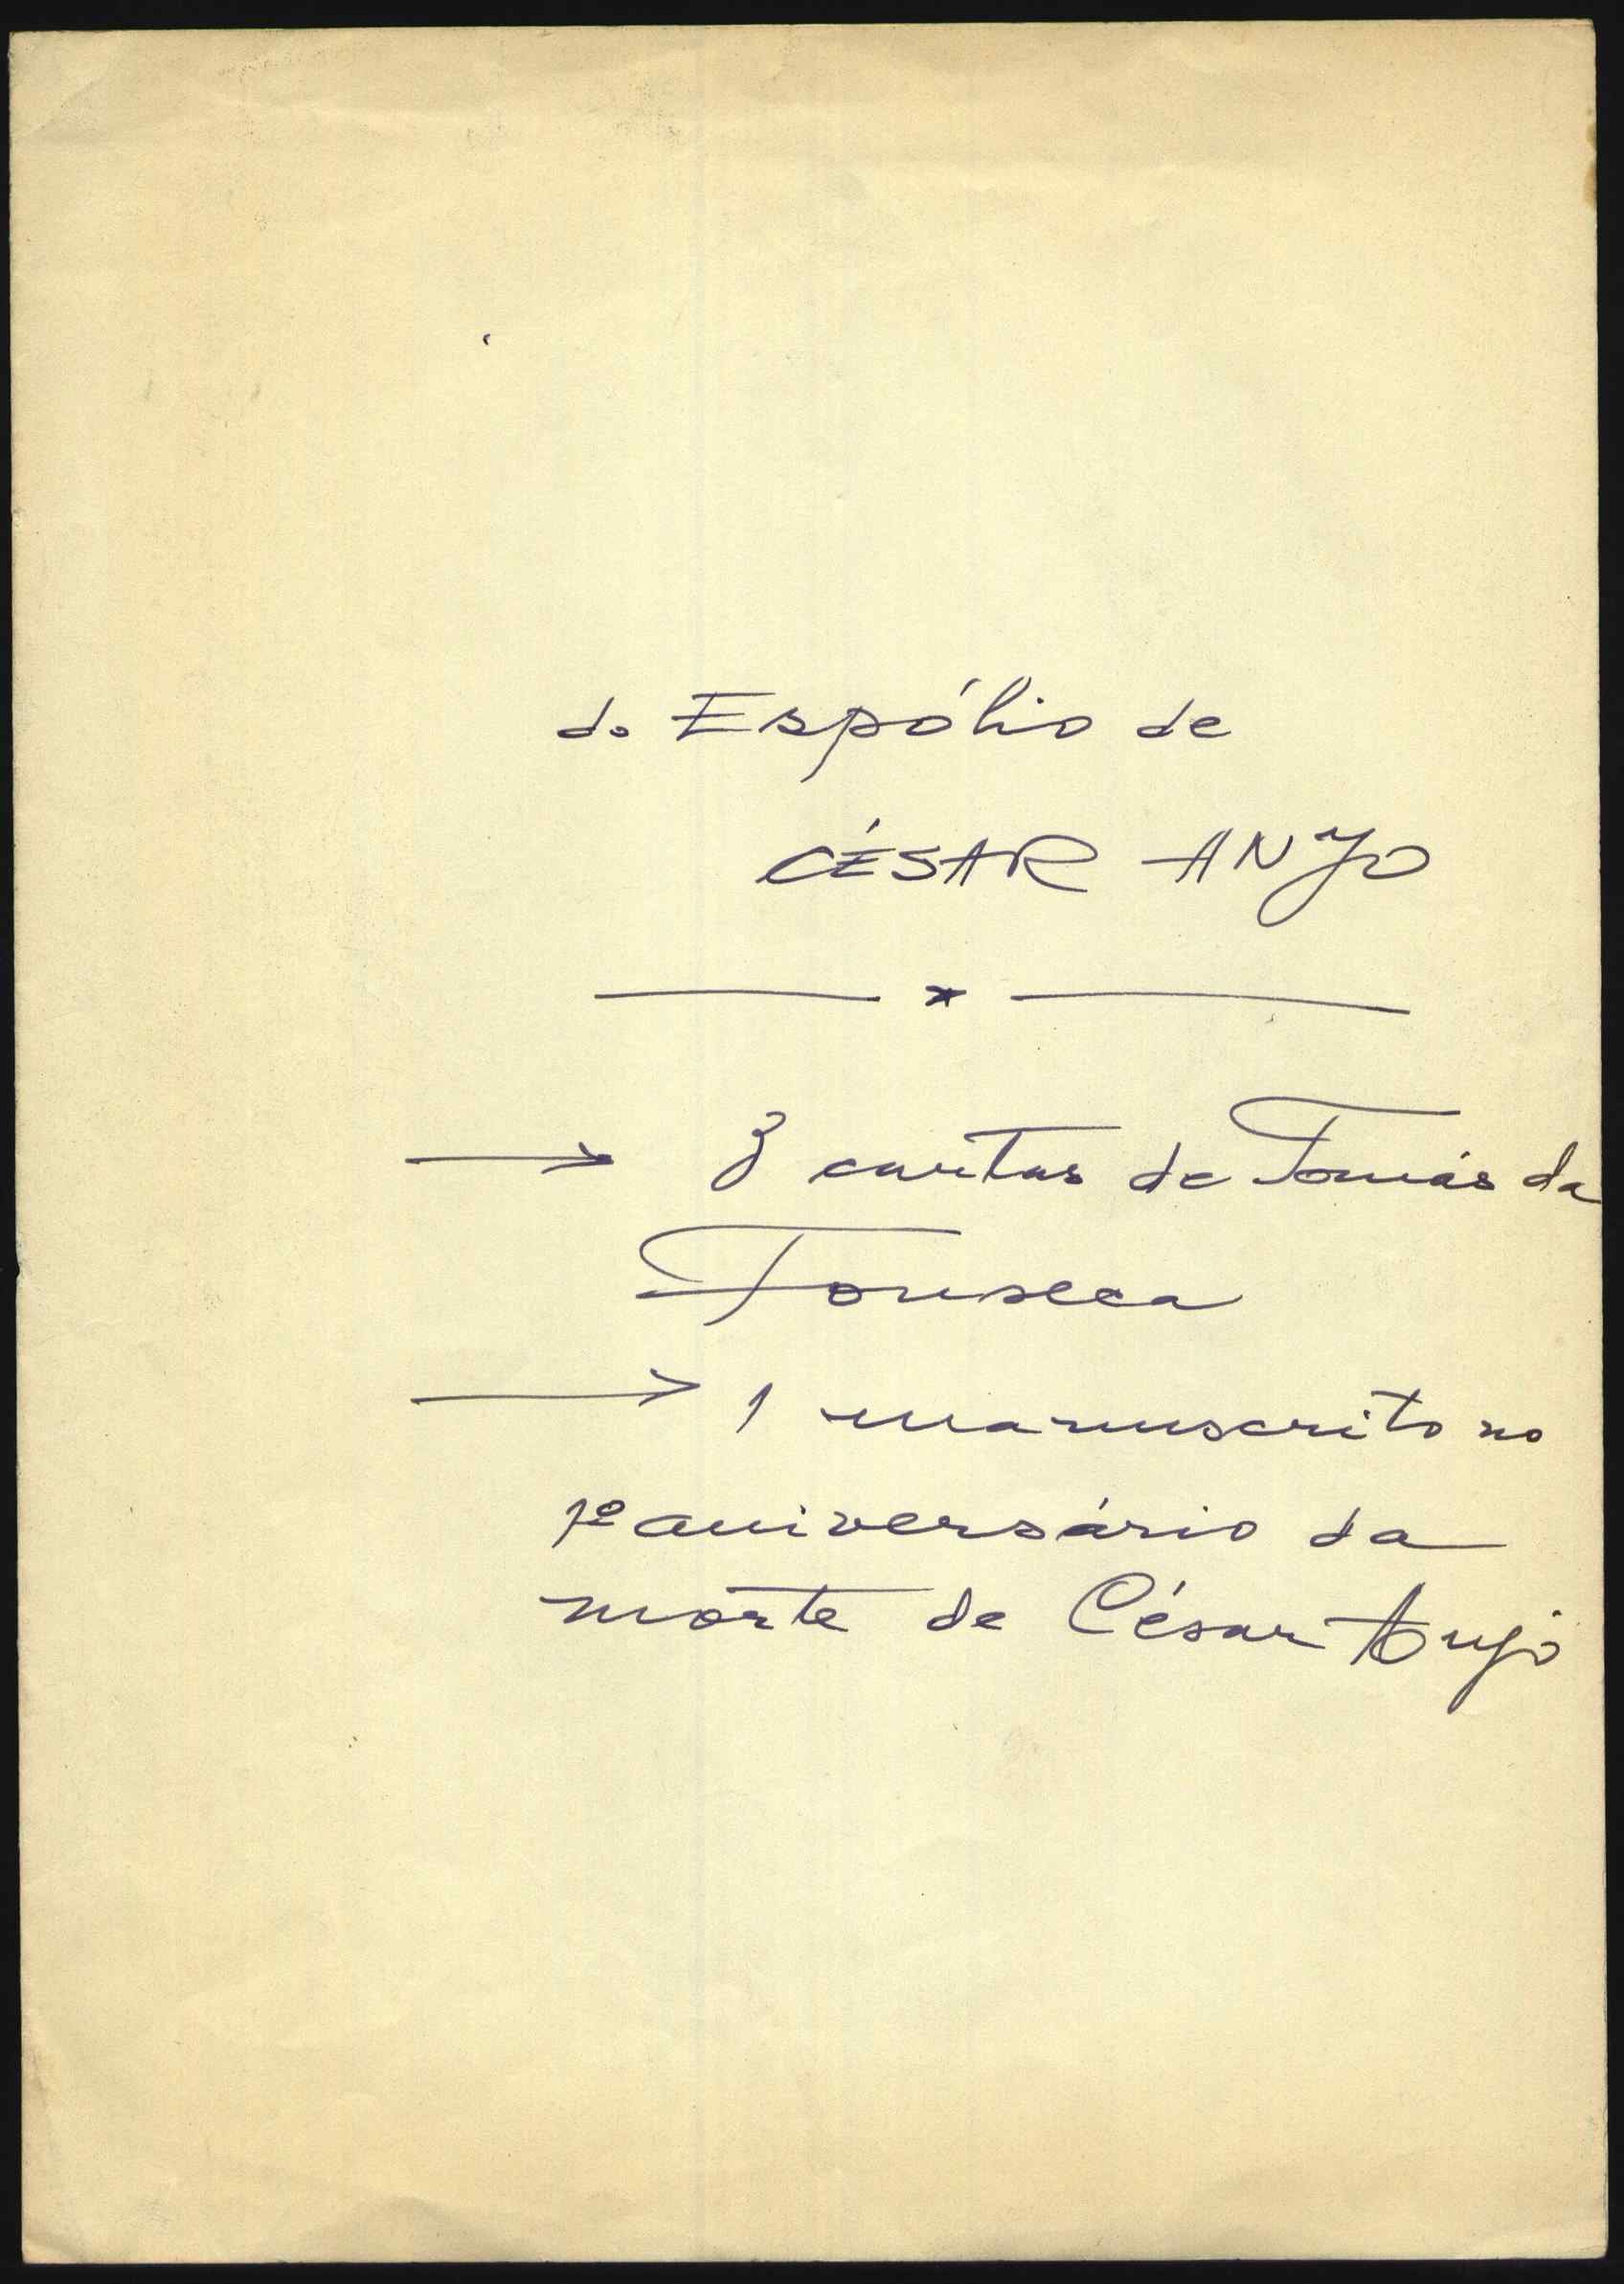 do Espólio de
CÉSAR ANJO
— * —
→ 3 cartas de Tomás da
Fonseca
→ 1 manuscrito no
1º aniversário da
morte de César Anjo